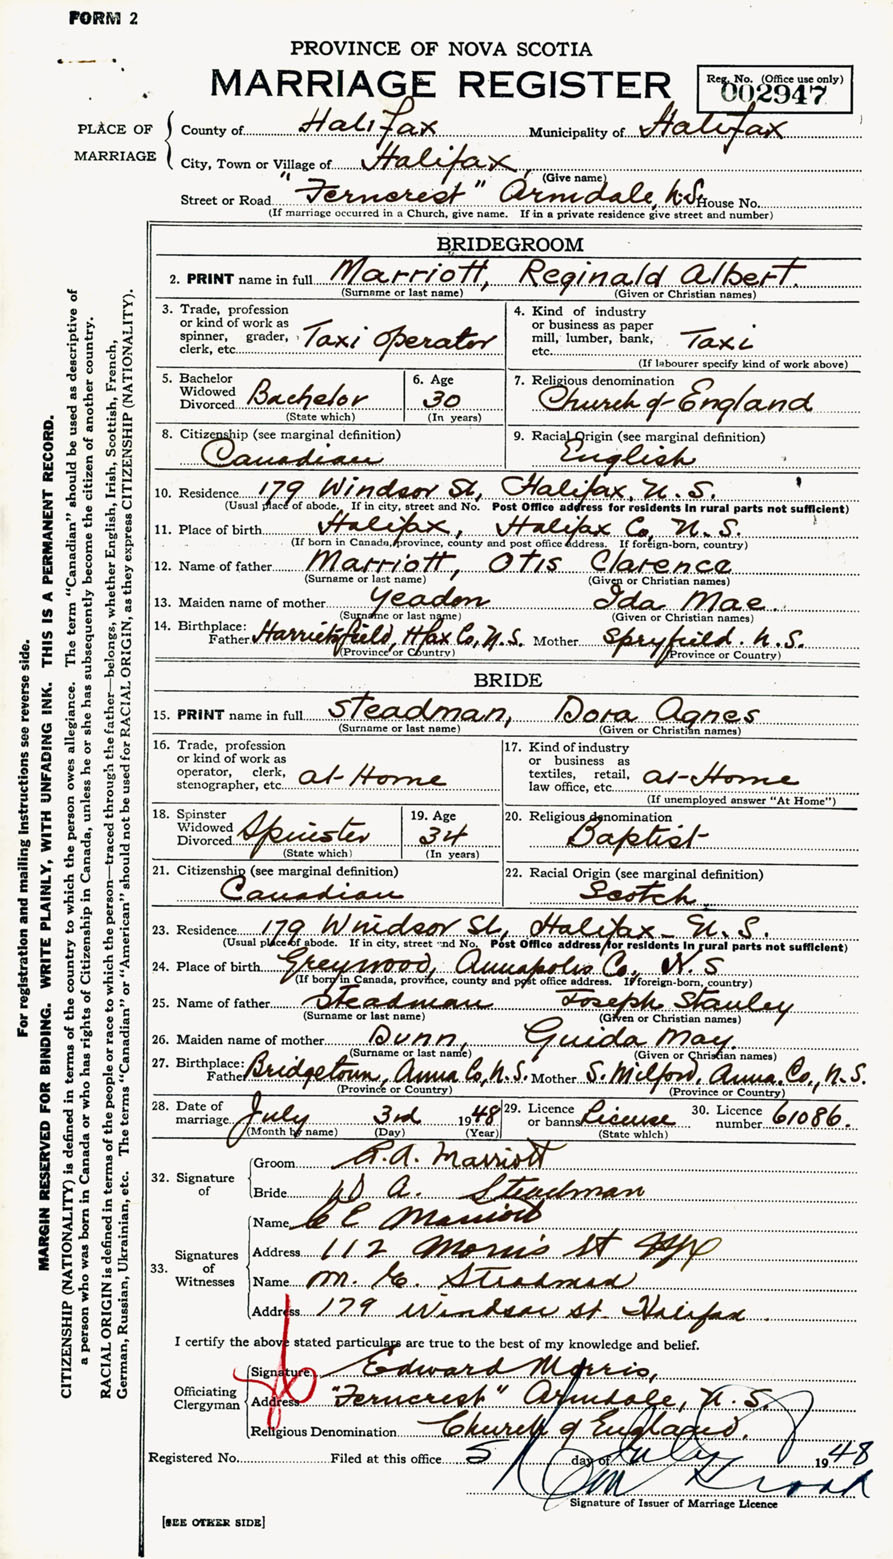 FORM 2
PROVINCE OF NOVA SCOTIA
MARRIAGE REGISTER
Reg. No. (Office use only)
002947
PLACE OF MARRIAGE
County of Halifax Municipality of Halifax
City, Town or Village of Halifax,
(Give name)
Street or Road "Ferncrest" Armdale, N.S. House No.
(If marriage occurred in a Church, give name. If in a private residence give street and number)
BRIDEGROOM
2. PRINT name in full Marriott, Reginald Albert.
(Surname or last name) (Given or Christian names)
3. Trade, profession or kind of work as spinner, grader, clerk, etc. Taxi Operator
4. Kind of industry or business as paper mill, lumber, bank, etc. Taxi
(If labourer specify kind of work above)
5. Bachelor Widowed Divorced Bachelor
(State which)
6. Age 30
(In years)
7. Religious denomination
Church of England
8. Citizenship (see marginal definition)
Canadian
9. Racial Origin (see marginal definition)
English
10. Residence 179 Windsor St, Halifax, N.S.
(Usual place of abode. If in city, street and No. Post Office address for residents in rural parts not sufficient)
11. Place of birth Halifax, Halifax Co, N.S.
(If born in Canada, province, county and post office address. If foreign-born, country)
12. Name of father Marriott, Otis Clarence
(Surname or last name) (Given or Christian names)
13. Maiden name of mother Yeadon Ida Mae.
(Surname or last name) (Given or Christian names)
14. Birthplace: Father Harrietsfield, Hfax Co, N.S. Mother Spryfield. N.S.
(Province or Country) (Province or Country)
BRIDE
15. PRINT name in full Steadman, Dora Agnes
(Surname or last name) (Given or Christian names)
16. Trade, profession or kind of work as operator, clerk, stenographer, etc. at-Home
17. Kind of industry or business as textiles, retail, law office, etc. at-Home
(If unemployed answer "At Home")
18. Spinster Widowed Divorced Spinster
(State which)
19. Age 34
(In years)
20. Religious denomination
Baptist
21. Citizenship (see marginal definition)
Canadian
22. Racial Origin (see marginal definition)
Scotch
23. Residence 179 Windsor St, Halifax - N.S.
(Usual place of abode. If in city, street and No. Post Office address for residents in rural parts not sufficient)
24. Place of birth Greywood, Annapolis Co, N.S
(If born in Canada, province, county and post office address. If foreign-born, country)
25. Name of father Steadman Joseph Stanley
(Surname or last name) (Given or Christian names)
26. Maiden name of mother Dunn, Guida May
(Surname or last name) (Given or Christian names)
27. Birthplace: Father Bridgetown, Anna Co, N.S. Mother S. Milford, Anna. Co., N.S.
(Province or Country) (Province or Country)
28. Date of marriage July 3rd 1948
(Month by name) (Day) (Year)
29. Licence or banns License
(State which)
30. Licence number 61086.
32. Signature of
Groom R.A. Marriott
Bride D A. Steadman
33. Signatures of Witnesses
Name C C Marriott
Address 112 Morris St Hfx
Name M. E. Steadman
Address 179 Windsor St. Halifax
I certify the above stated particulars are true to the best of my knowledge and belief.
Officiating Clergyman
Signature Edward Morris,
Address "Ferncrest" Armdale, N.S.
Religious Denomination Church of England.
Registered No. Filed at this office 5 day of July 1948
Signature of Issuer of Marriage Licence
[SEE OTHER SIDE]
For registration and mailing instructions see reverse side.
MARGIN RESERVED FOR BINDING. WRITE PLAINLY, WITH UNFADING INK. THIS IS A PERMANENT RECORD.
CITIZENSHIP (NATIONALITY) is defined in terms of the country to which the person owes allegiance. The term "Canadian" should be used as descriptive of
a person who was born in Canada or who has rights of Citizenship in Canada, unless he or she has subsequently become the citizen of another country.
RACIAL ORIGIN is defined in terms of the people or race to which the person—traced through the father—belongs, whether English, Irish, Scottish, French,
German, Russian, Ukrainian, etc. The terms "Canadian" or "American" should not be used for RACIAL ORIGIN, as they express CITIZENSHIP (NATIONALITY).